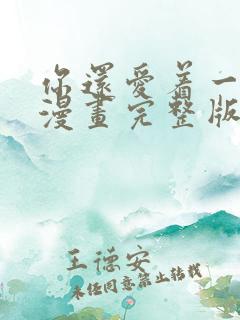 你還愛着一
漫畫完整版
王德安
未经同意禁止转载